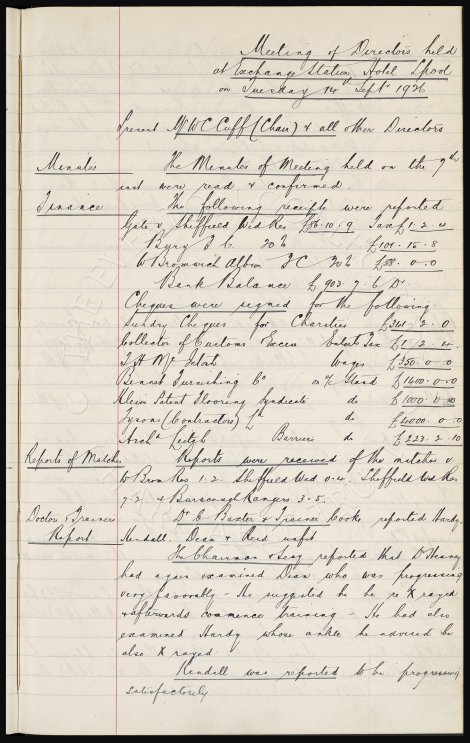 Meeting of Directors held
at Exchange Station Hotel Lpool
on Tuesday 14th Sept 1926
Present Mr W C Cuff (Chair) & all other Directors
Minutes The Minutes of Meeting held on the 7th
inst were read & confirmed.
Finance The following receipts were reported
Gate v Sheffield Wed Res £86.10.9 Tax £1.2.4
Bury F C 20% £101.15.8
W Bromwich Albion F C 20% £88.0.0
Bank Balance £903.7.6 Dr
Cheques were signed for the following:
Sundry Cheques for Charities £341.2.0
Collector of Customs Excise Entert Tax £1.2.4
T H McIntosh Wages £350.0.0
Bennet Furnishing Co on a/c Stand £1400.0.0
Klein Patent Flooring Syndicate do £1000.0.0
Tysons (Contractors) Ld do £4000.0.0
Archd Leitch Barriers do £223.2.10
Reports of Matches Reports were received of the matches v.
W Brom Res 1.2. Sheffield Wed 0.4. Sheffield Wed Res
7.2 & Burscough Rangers 3.5.
Doctor & Trainers Dr C Baxter & Trainer Cooke reported Hardy.
Report Kendall. Dean & Reid unfit
The Chairman & Secy reported that Dr
had again examined Dean who was progressing
very favorably - He suggested he be re X rayed
& afterwards commence training - He had also
examined Hardy whose ankle he advised be
also X rayed
Kendall was reported to be progressing
satisfactorily